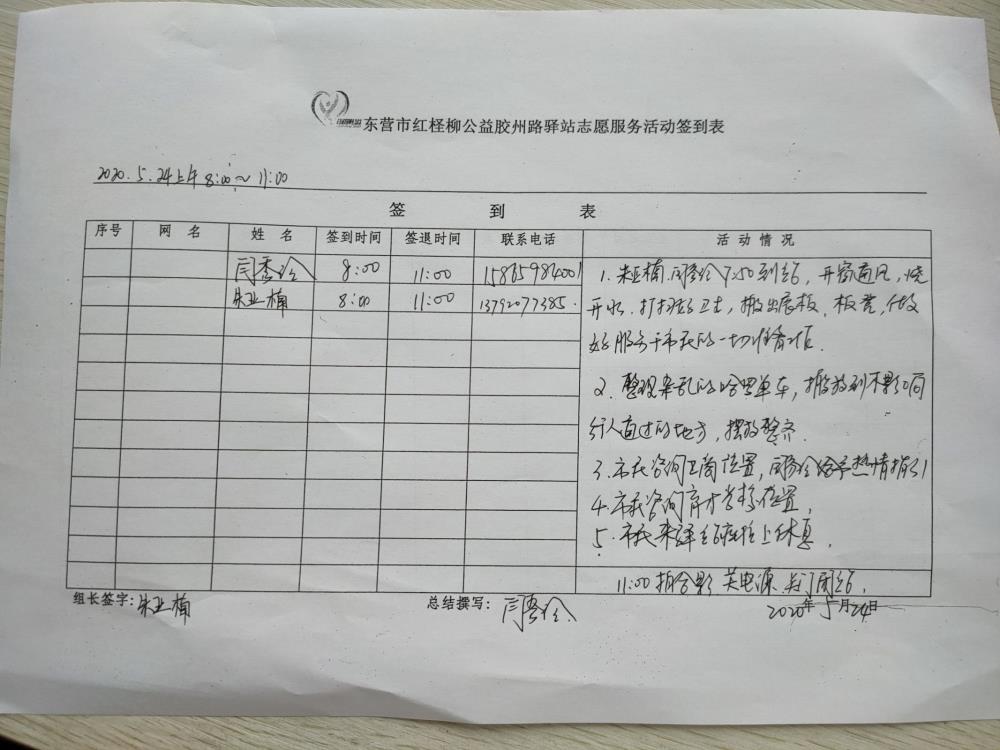 东营市红柽柳公益胶州路驿站志愿服务活动签到表
2020.5.24上午8:00~11:00
签 到 表
序号 网 名 姓 名 签到时间 签退时间 联系电话 活 动 情 况
闫秀玲 8:00 11:00 15865984001
朱亚楠 8:00 11:00 13792077385.
1. 朱亚楠、闫秀玲7:50到站, 开窗通风, 烧
开水、打扫站卫生, 搬出展板、板凳, 做
好服务于市民的一切准备工作.
2. 整理杂乱的哈罗单车, 摆放到不影响
行人通过的地方, 摆放整齐.
3. 市民咨询工商位置, 闫秀玲给予热情指引
4. 市民咨询育才学校位置,
5. 市民来驿站座椅上休息.
11:00拍合影 关电源、关门闭站.
组长签字: 朱亚楠 总结撰写: 闫秀玲 2020年5月24日